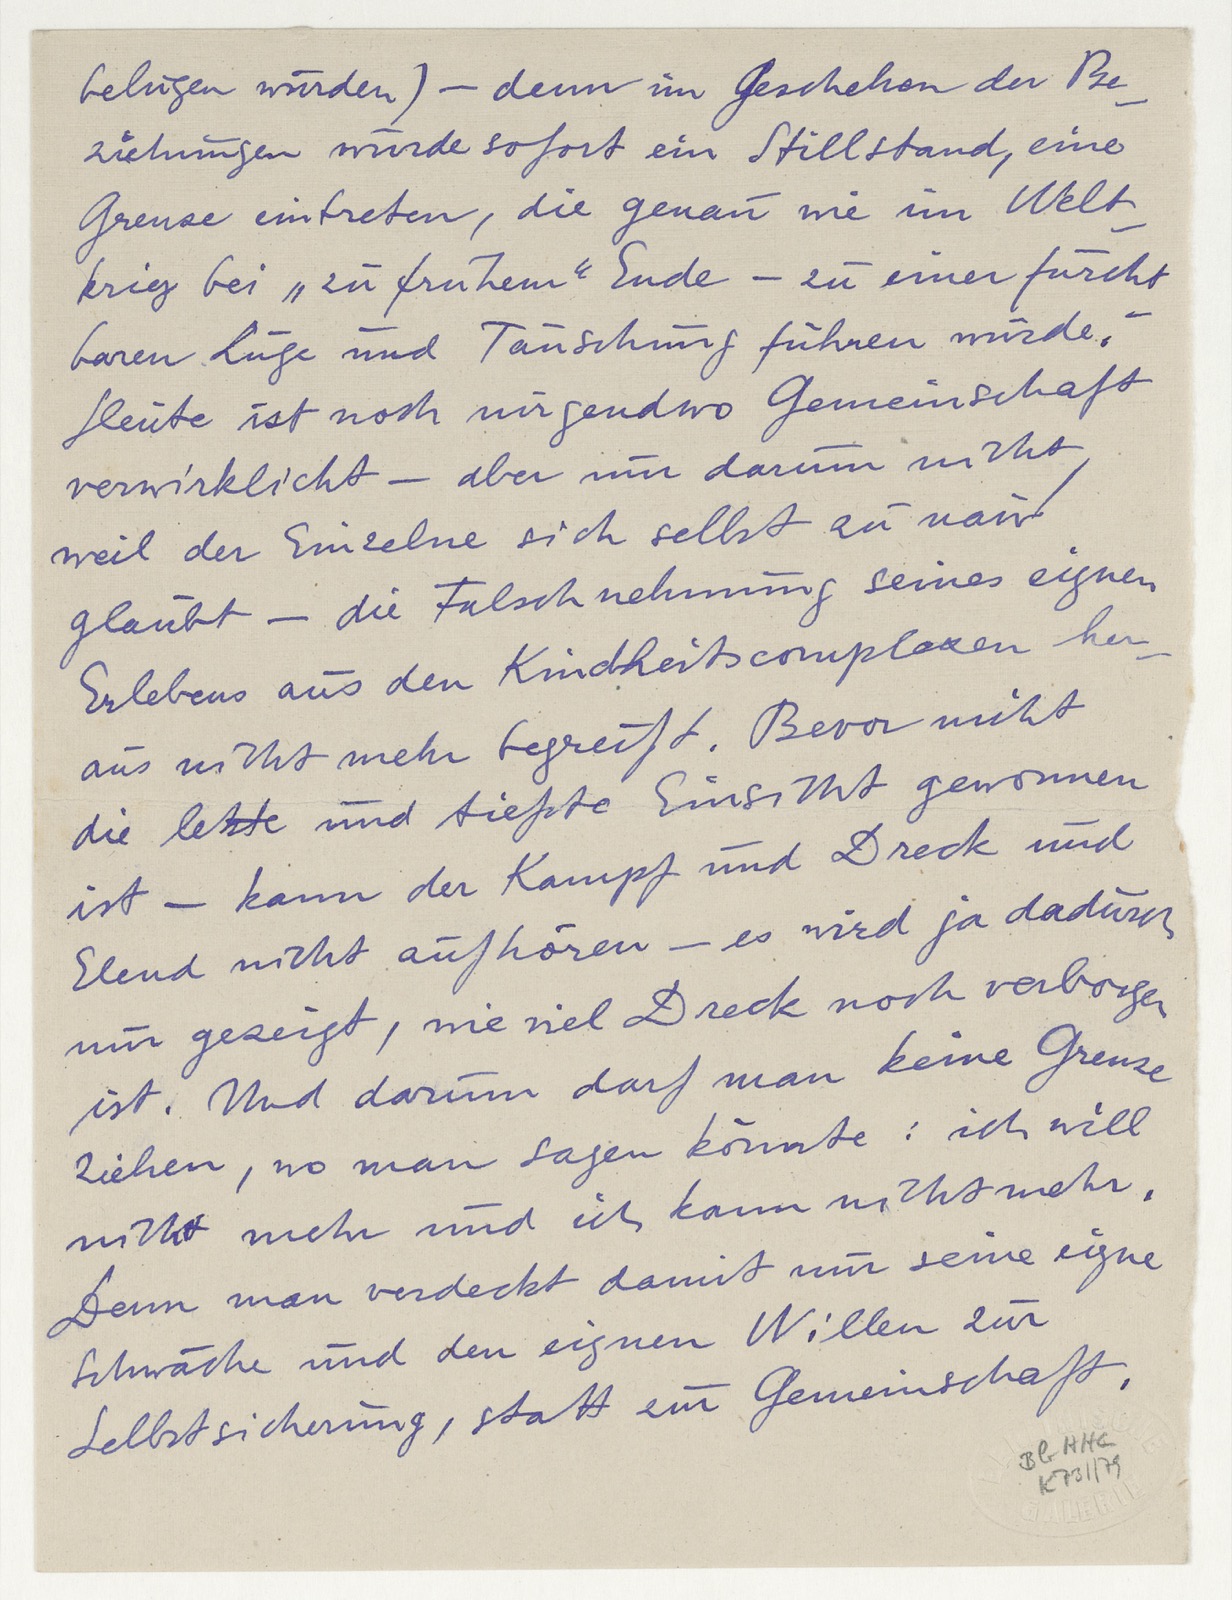 belügen würden) — denn im Geschehen der Be-
ziehungen würde sofort ein Stillstand, eine
Grenze eintreten, die genau wie im Welt-
krieg bei „zu frühem“ Ende — zu einer furcht
baren Lüge und Täuschung führen würde.
Heute ist noch nirgendwo Gemeinschaft
verwirklicht — aber nur darum nicht,
weil der Einzelne sich selbst zu naiv
glaubt — die Falschnehmung seines eignen
Erlebens aus den Kindheitscomplexen her-
aus nicht mehr begreift. Bevor nicht
die letzte und tiefste Einsicht gewonnen
ist — kann der Kampf und Dreck und
Elend nicht aufhören — es wird ja dadurch
nur gezeigt, wie viel Dreck noch verborgen
ist. Und darum darf man keine Grenze
ziehen, wo man sagen könnte: ich will
nicht mehr und ich kann nicht mehr.
Denn man verdeckt damit nur seine eigne
Schwäche und den eignen Willen zur
Selbstsicherung, statt zur Gemeinschaft.
BG HHC
K731/79